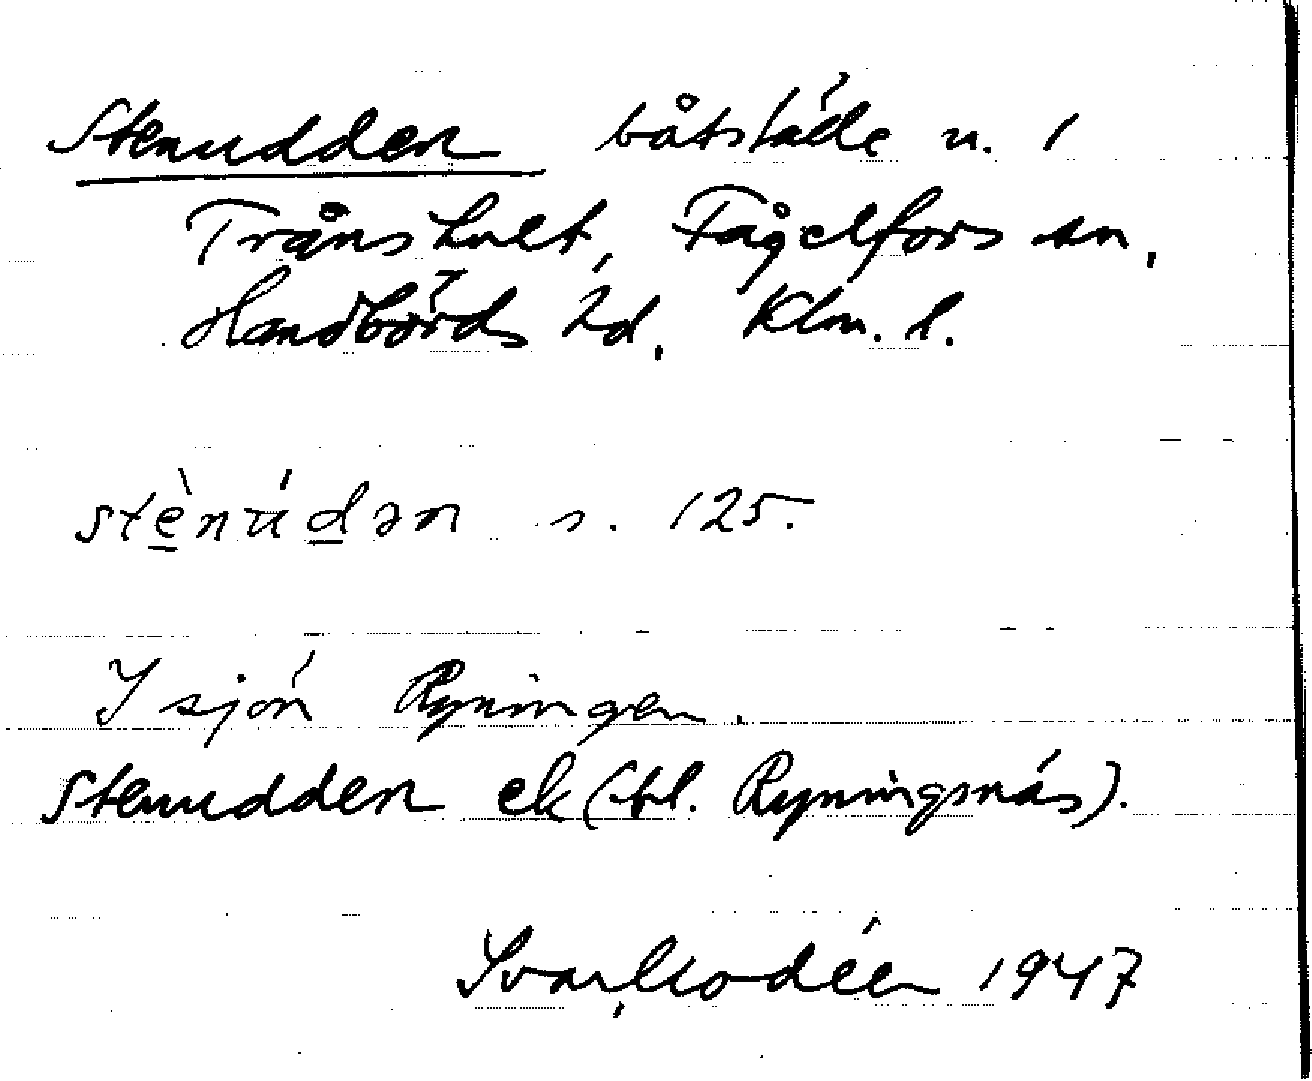 Stenudden båtställe u. 1
Trånshult, Fågelfors sn,
Handbörds hd, Klm. l.
stènúdən s. 125.
I sjön Ryningen.
Stenudden ek (bl. Ryningsnäs).
1947